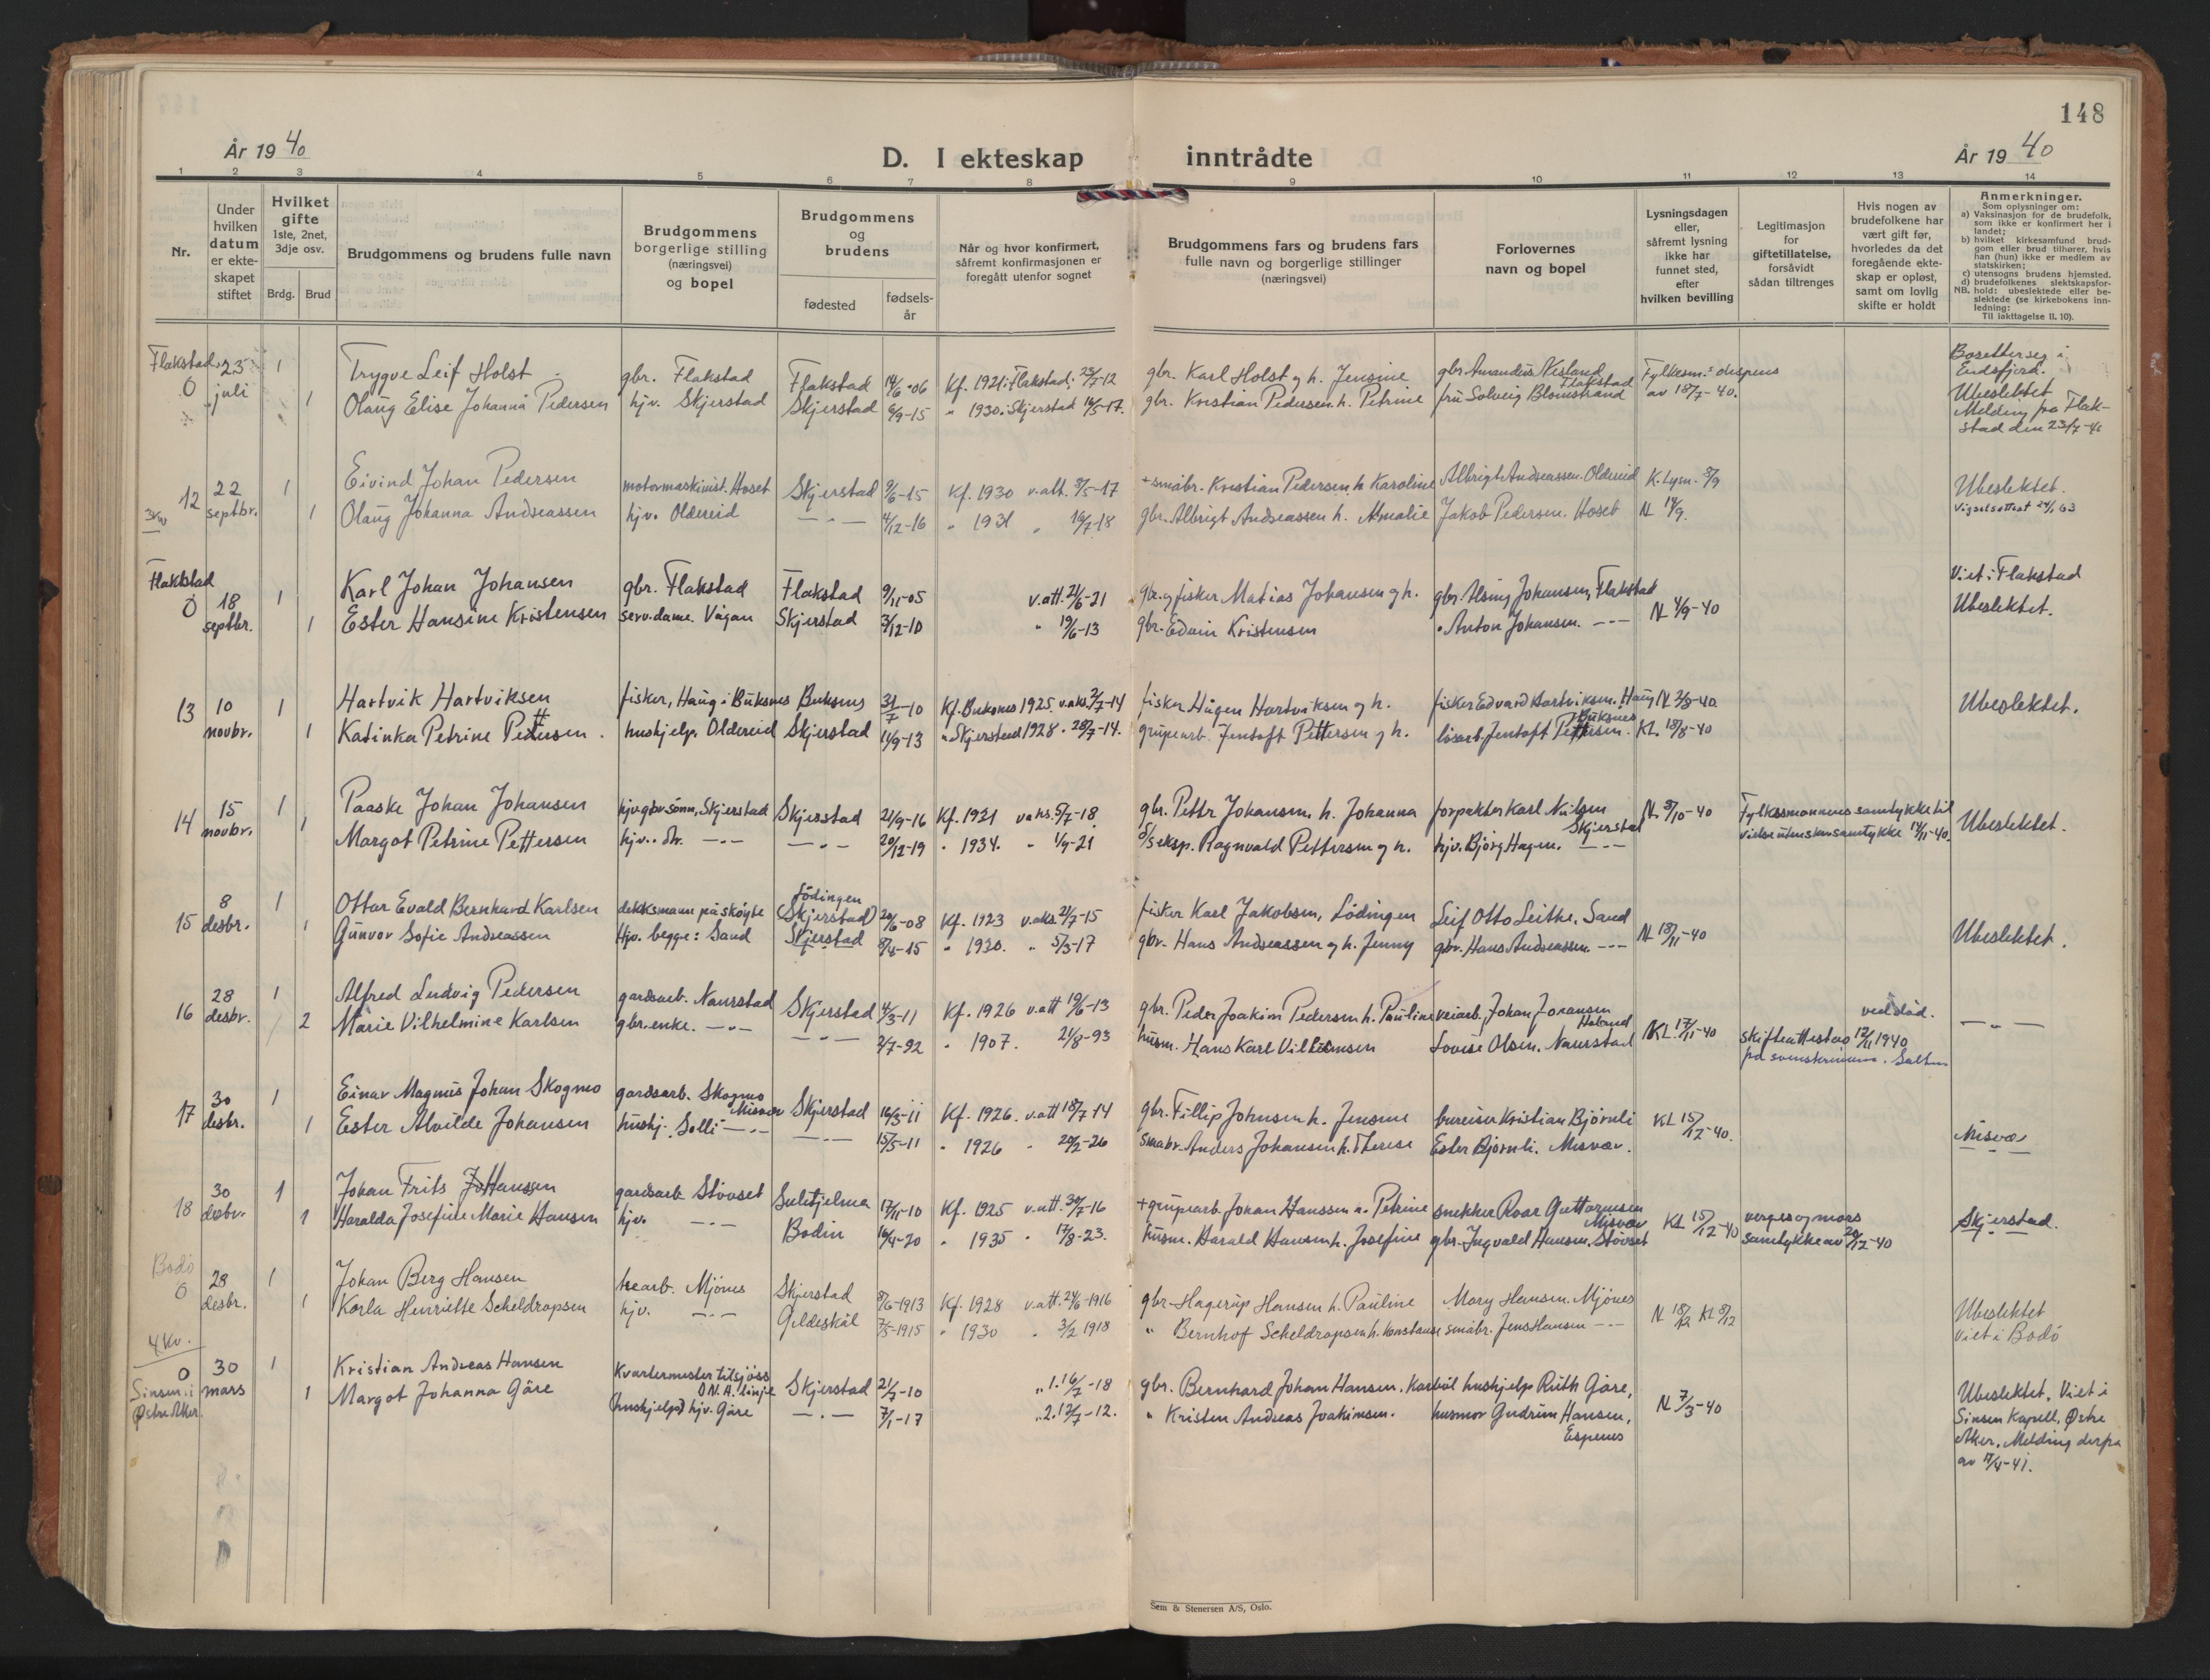 148
År 1940
D. I ekteskap inntrådte
År 1940
1 2 3 4 5 6 7 8 9 10 11 12 13 14
Nr.
Under hvilken datum er ekte-skapet stiftet
Hvilket gifte 1ste, 2net, 3dje osv.
Brdg. Brud
Brudgommens og brudens fulle navn
Brudgommens borgerlige stilling (næringsvei) og bopel
Brudgommens og brudens
fødested
fødsels-år
Når og hvor konfirmert, såfremt konfirmasjonen er foregått utenfor sognet
Brudgommens fars og brudens fars fulle navn og borgerlige stillinger (næringsvei)
Forlovernes navn og bopel
Lysningsdagen eller, såfremt lysning ikke har funnet sted, efter hvilken bevilling
Legitimasjon for giftetillatelse, forsåvidt sådan tiltrenges
Hvis nogen av brudefolkene har vært gift før, hvorledes da det foregående ekte-skap er opløst, samt om lovlig skifte er holdt
Anmerkninger.
Som oplysninger om:
a) Vaksinasjon for de brudefolk, som ikke er konfirmert her i landet;
b) hvilket kirkesamfund brud-gom eller brud tilhører, hvis han (hun) ikke er medlem av statskirken;
c) utensogns brudens hjemsted.
d) brudefolkenes slektskapsfor-
NB. hold: ubeslektede eller be-slektede (se kirkebokens inn-ledning:
Til iakttagelse II. 10).
Flakstad 23 1 Trygve Leif Holst gbr. Flakstad Flakstad 14/6-06 Kf. 1921 i Flakstad; 23/7-12 gbr. Karl Holst og h. Jensine gbr Amandus Flakstad Fylkesm.s dispens Bosetter seg i
0 juli 1 Olaug Elise Johanna Pedersen hjv. Skjerstad Skjerstad 6/9-15 " 1930 i Skjerstad 14/5-17. gbr. Kristian Pedersen h. Petrine fru Solveig Blomstrand av 18/7-40. Eidsfjord.
Ubeslektet
Melding fra Flak-
stad den 23/7-40
12 22 1 Eivind Johan Pedersen motormaskinist. Hoset Skjerstad 9/6-15 Kf. 1930 v.att. 3/5-17 + småbr. Kristian Pedersen h Karoline Albrigt Andreassen. Oldereid K. Lysn. 8/9 Ubeslektet.
septbr. 1 Olaug Johanna Andreassen hjv. Oldereid — " — 4/12-16 " 1931 " 16/7-18 gbr. Albrigt Andreassen h. Amalie Jakob Pedersen. Hoset N 14/9. Vigselsattest 24/1 63
Flakstad Karl Johan Johansen gbr. Flakstad Flakstad 9/11-05 v.att. 21/6-21 gbr. og fisker Matias Johansen og h. gbr. Johansen, Flakstad Viet i Flakstad
0 18 septbr. 1 1 Ester Hansine Kristensen serv.dame. Vågan Skjerstad 3/12-10 " 19/6-13 gbr. Edvin Kristensen " Anton Johansen. — " — N 4/9-40 Ubeslektet.
13 10 1 Hartvik Hartviksen fisker, Haug i Buksnes Buksnes 31/7-10 Kf. Buksnes 1925 v.aks. 2/7-14 fisker Hågen Hartviksen og h. fisker Edvard Hartviksen. Haug N 2/8-40 Ubeslektet.
novbr. 1 Katinka Petrine Pettersen. hushjelp. Oldereid Skjerstad 11/9-13 " Skjerstad 1928 " 28/7-14. grubearb. Jentoft Pettersen og h. Buksnes løsarb. Jentoft Pettersen. KL. 18/8-40
14 15 1 Paaske Johan Johansen hjv. gbr sønn, Skjerstad Skjerstad 21/9-16 Kf. 1921 v aks. 5/7-18 gbr. Petter Johansen h. Johanna forpakter Karl Nilsen Skjerstad N 3/10-40 Fylkesmannens samtykke til Ubeslektet.
novbr. 1 Margot Petrine Pettersen hjv. dtr. — " — — " — 20/12-19 " 1934. " 1/9-21 D/S eksp. Ragnvald Pettersen og h. hjv. Bjørg Hagen. — " — vielse uten samtykke 14/11-40.
15 8 1 Ottar Evald Bernhard Karlsen dekksmann på skøyte Lödingen (Skjerstad) 20/6-08 Kf. 1923 v.aks. 2/7-15 fisker Karl Jakobsen, Lödingen Leif Otto Leitke. Sand N 18/11-40 Ubeslektet.
desbr. 1 Gunvor Sofie Andreassen Hjv. begge: Sand Skjerstad 8/4-15 " 1930. " 5/3-17 gbr. Hans Andreassen og h. Jenny gbr. Hans Andreassen — " —
16 28 1 Alfred Ludvig Pedersen gardsarb. Naurstad Skjerstad 4/3-11 Kf. 1926 v.att 19/6-13 gbr. Peder Joakim Pedersen h. Pauline veiarb. Johan Johansen ved död.
desbr. 2 Marie Vilhelmine Karlsen gbr.enke. — " — — " — 2/7-92 " 1907. 21/8-93 husm. Hans Karl Vilhelmsen Lovise Olsen. Naurstad KL. 17/11-40 skifteattest av 12/11 1940 — " —
fra sorenskriveren i Salten
17 30 1 Einar Magnus Johan Skogmo gardsarb. Skogmo Misvær Skjerstad 16/3-11 Kf. 1926. v.att 18/7-14 gbr. Fillip Johnsen h. Jensine bureiser Kristian Bjørnli KL 15/12-40. Misvær
desbr. 1 Ester Alvilde Johansen hushj. Solli — " — — " — 15/5-11 " 1926 " 20/2-26 småbr. Anders Johansen h. Therese Ester Bjørnli. Misvær.
18 30 1 Johan Frits Hanssen gardsarb. Stövset Sulitjelma 17/11-10 Kf. 1925 v.att. 30/7-16 + grubearb. Johan Hanssen h. Petrine snekker Roar Guttormsen Misvær KL 15/12-40 verges og mors Skjerstad.
desbr. 1 Haralda Josefine Marie Hansen hjv. — " — Bodin 16/4-20 " 1935 " 17/8-23. husm. Harald Hansen h. Josefine gbr. Ingvald Hansen. Stövset samtykke av 20/12-40
Bodö
0 28 1 Johan Berg Hansen Mjönes Skjerstad 8/6-1913 Kf. 1928 v.att. 24/6-1916 gbr. Hagerup Hansen h. Pauline Mary Hansen. Mjönes N 18/12 KL 8/12 Ubeslektet
desbr. 1 Karla Henriette Scheldropsen hjv. — " — Gildeskål 7/5-1915 " 1930 " 3/2 1918 " Bernhof Scheldropsen h. Konstanse småbr. Jens Hansen — " — viet i Bodö
4 Kv.
0 30 1 Kristian Andreas Hansen Kvartermester tilsjøss Skjerstad 21/3-10 "1. 16/7-18 gbr. Bernhard Johan Hansen. Karböl hushjelp Ruth Gåre, N 7/3-40 Ubeslektet. Viet i
Sinsen i mars 1 Margot Johanna Gåre D.N.A. linje — " — 7/1-17 "2. 12/7-12. " Kristen Andreas Joakimsen. husmor Gudrun Hansen, Sinsen Kapell, Østre
Østre Aker. (hushjelp) hjv. Gåre Espenes Aker. Melding derfra
av 17/4-41.
Sem & Stenersen A/S, Oslo.